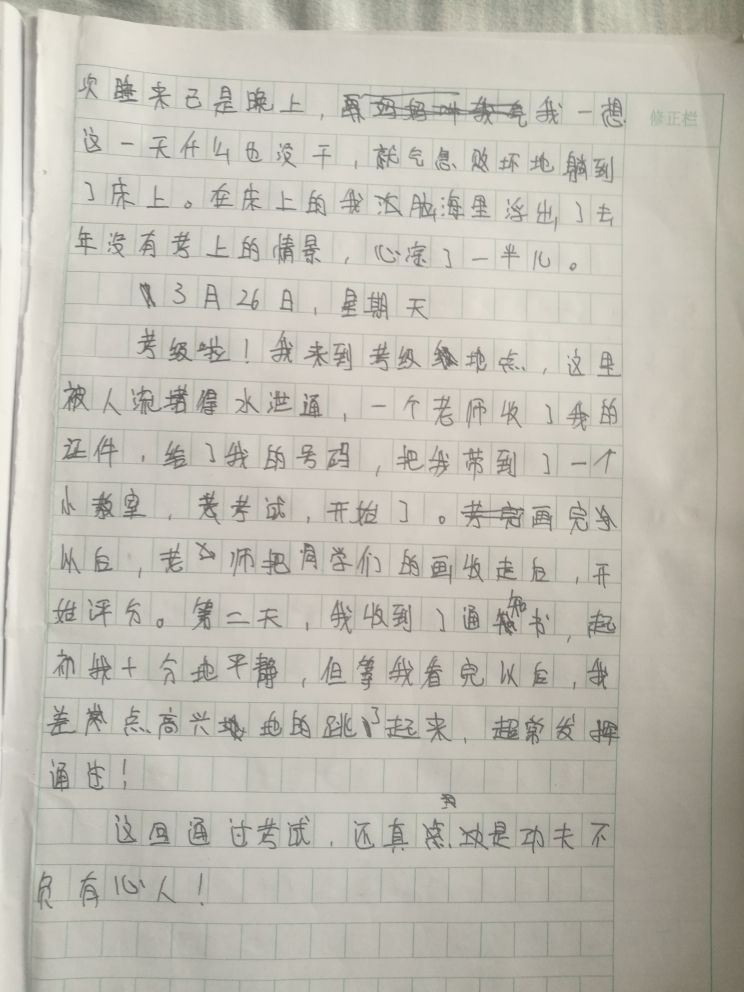 次睡来己是晚上，我一想
修正栏
这一天什么也没干，就气急败坏地躺到
了床上。在床上的我脑海里浮出了去
年没有考上的情景，心凉了一半儿。
3月26日，星期天
考级啦！我来到考级地点，这里
被人流堵得水泄通，一个老师收了我的
证件，给了我的号码，把我带到了一个
小教室，考试，开始了。画完
以后，老师把同学们的画收走后，开
始评分。第二天，我收到了通知书，起
初我十分地平静，但等我看完以后，我
差点高兴地的跳了起来，超常发挥
通过！
这回通过考试，还真是功夫不
负有心人！